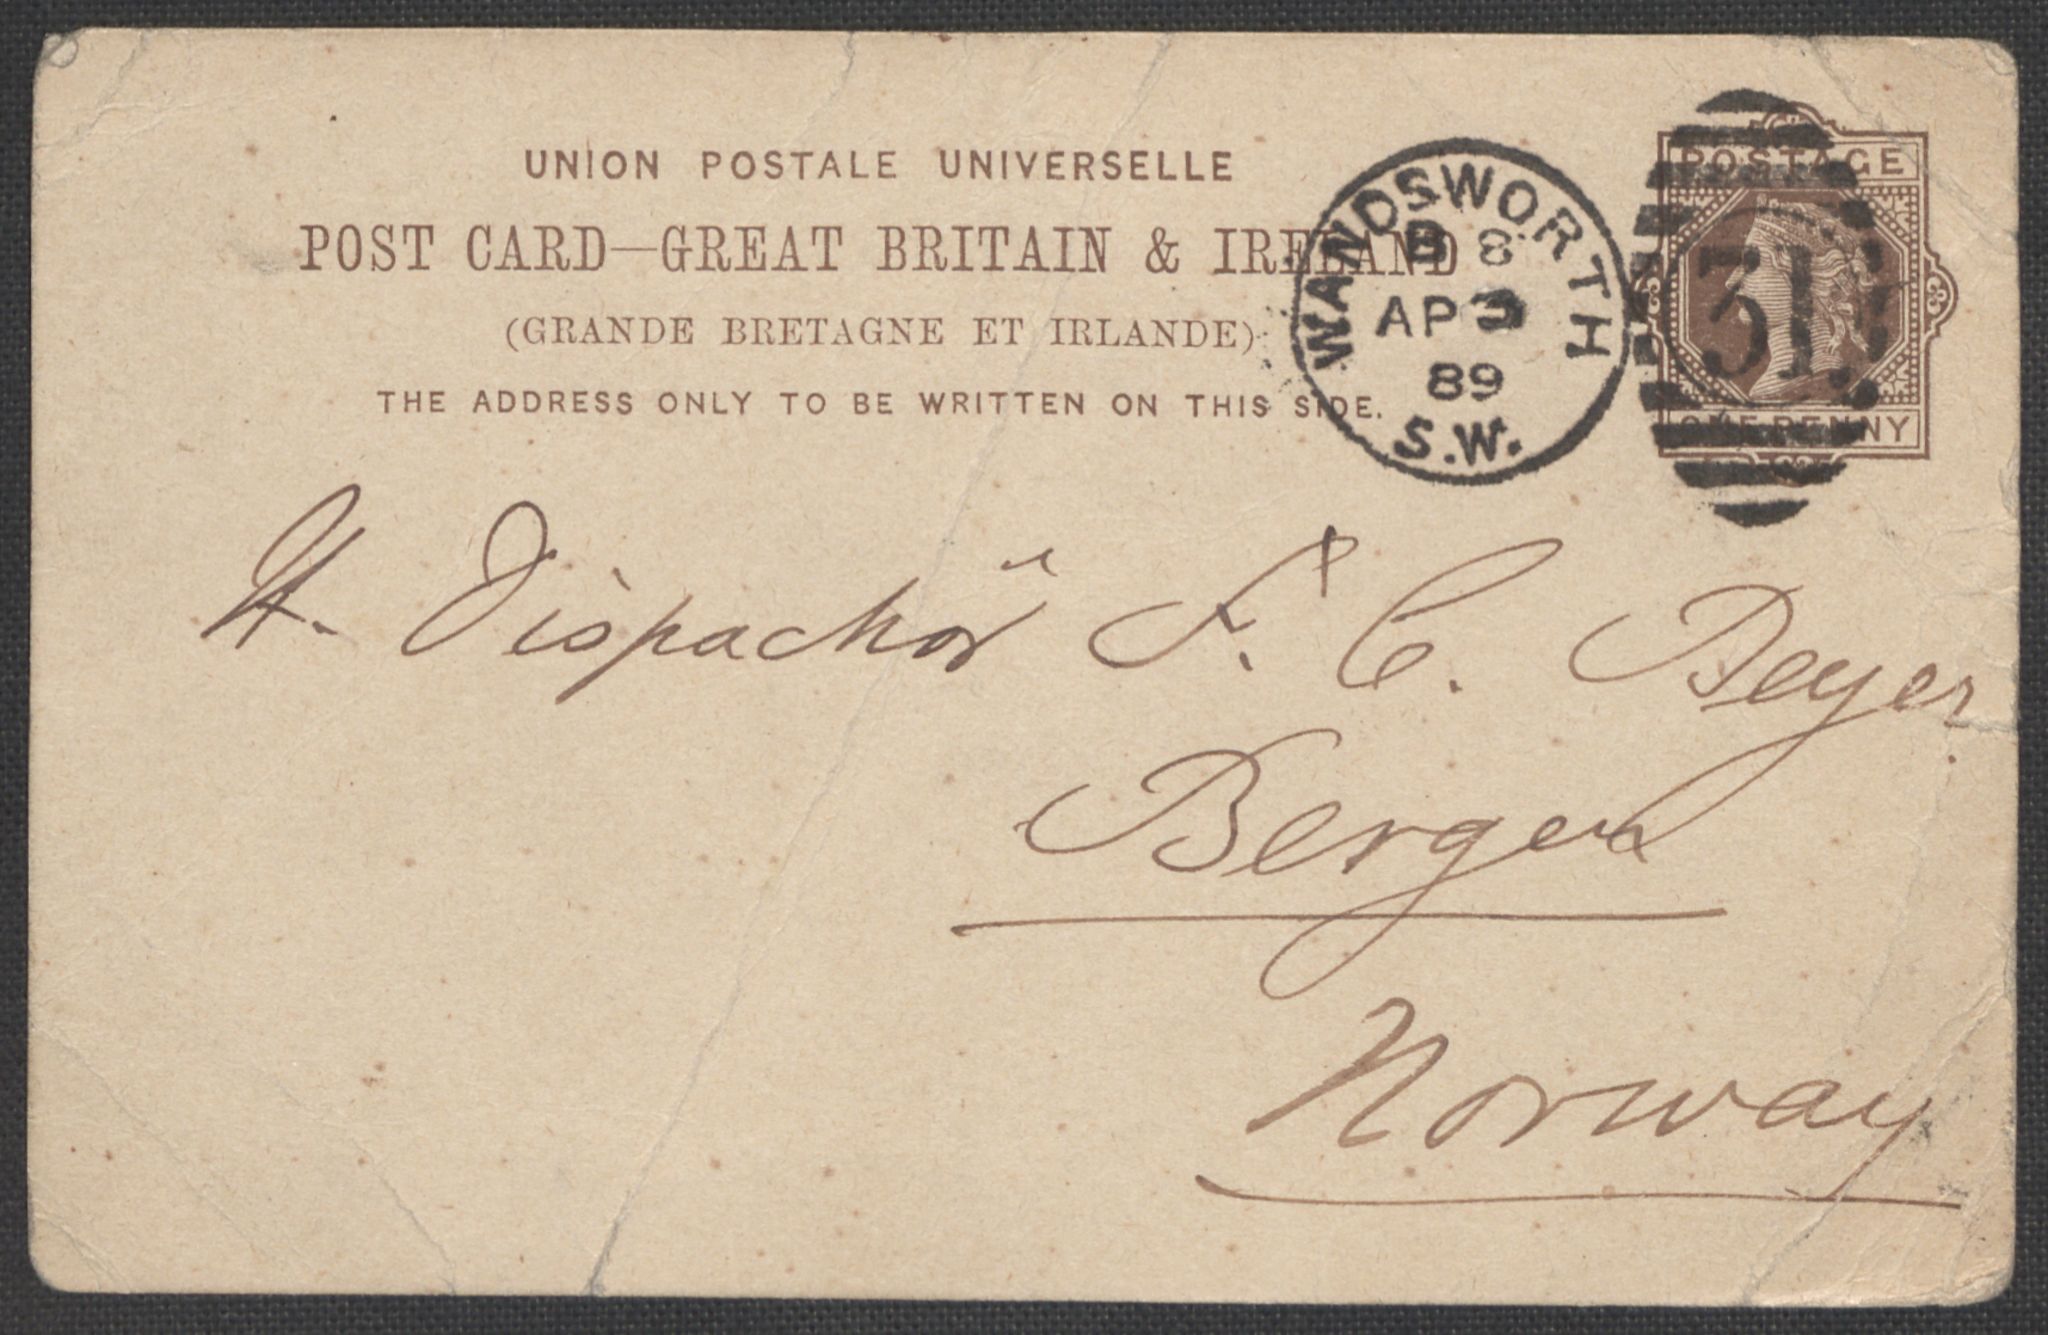 UNION POSTALE UNIVERSELLE
POST CARD—GREAT BRITAIN & IRELAND
(GRANDE BRETAGNE ET IRLANDE)
THE ADDRESS ONLY TO BE WRITTEN ON THIS SIDE.
WANDSWORTH
B 8
AP 3
89
S.W.
POSTAGE
ONE PENNY
H. Dispachör F. C. Beyer
Bergen
Norway